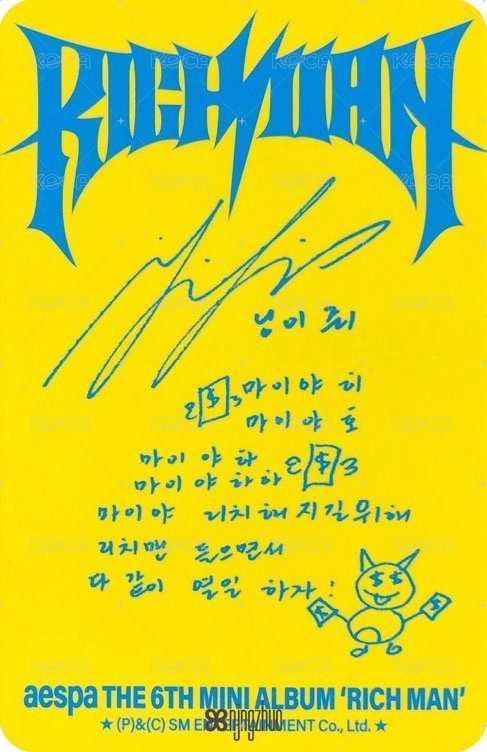 RICH MAN
$ 마이야 히
마이야 호
마이야 하 $
마이야 하하
마이야 리치해지길 위해
리치맨 들으면서
다 같이 열일 하자!
aespa THE 6TH MINI ALBUM 'RICH MAN'
★ (P)&(C) SM ENTERTAINMENT Co., Ltd. ★